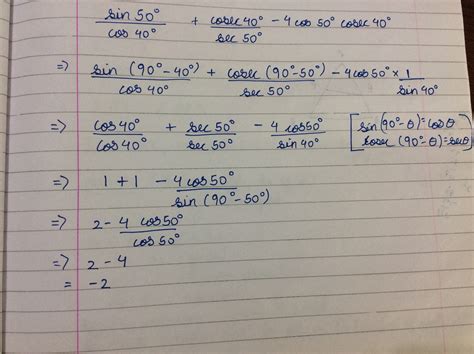 sin 50° / cos 40° + cosec 40° / sec 50° - 4 cos 50° cosec 40°
=> sin (90°-40°) / cos 40° + cosec (90°-50°) / sec 50° - 4cos 50° × 1 / sin 40°
=> cos 40° / cos 40° + sec 50° / sec 50° - 4 cos 50° / sin 40° [sin (90°-θ) = cos θ
cosec (90°-θ) = sec θ]
=> 1 + 1 - 4 cos 50° / sin (90°-50°)
=> 2 - 4 cos 50° / cos 50°
=> 2 - 4
= -2